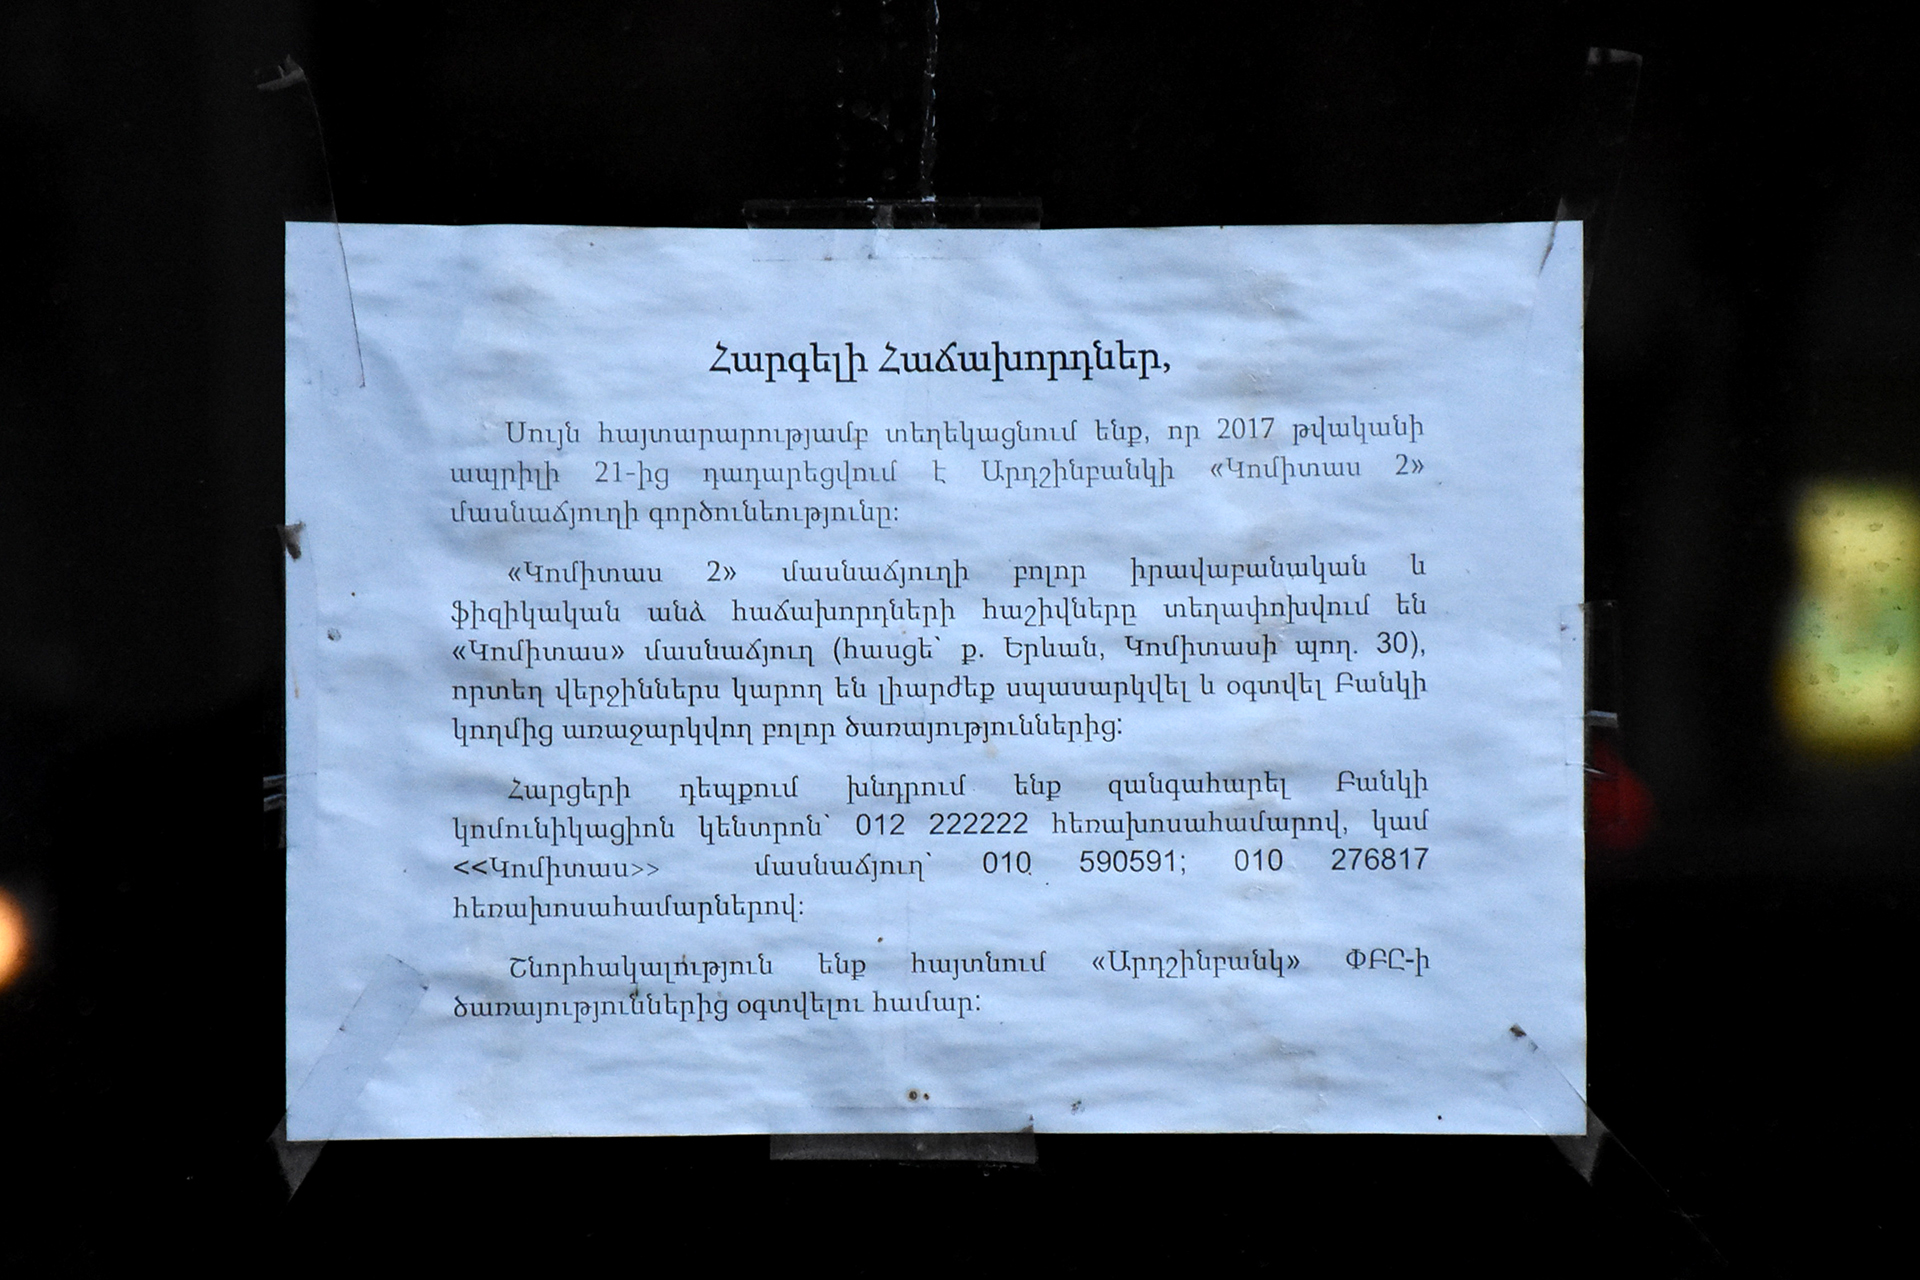 Հարգելի Հաճախորդներ,
Սույն հայտարարությամբ տեղեկացնում ենք, որ 2017 թվականի
ապրիլի 21-ից դադարեցվում է Արդշինբանկի «Կոմիտաս 2»
մասնաճյուղի գործունեությունը:
«Կոմիտաս 2» մասնաճյուղի բոլոր իրավաբանական և
ֆիզիկական անձ հաճախորդների հաշիվները տեղափոխվում են
«Կոմիտաս» մասնաճյուղ (հասցե՝ ք. Երևան, Կոմիտասի պող. 30),
որտեղ վերջիններս կարող են լիարժեք սպասարկվել և օգտվել Բանկի
կողմից առաջարկվող բոլոր ծառայություններից:
Հարցերի դեպքում խնդրում ենք զանգահարել Բանկի
կոմունիկացիոն կենտրոն՝ 012 222222 հեռախոսահամարով, կամ
<<Կոմիտաս>> մասնաճյուղ՝ 010 590591; 010 276817
հեռախոսահամարներով:
Շնորհակալություն ենք հայտնում «Արդշինբանկ» ՓԲԸ-ի
ծառայություններից օգտվելու համար: